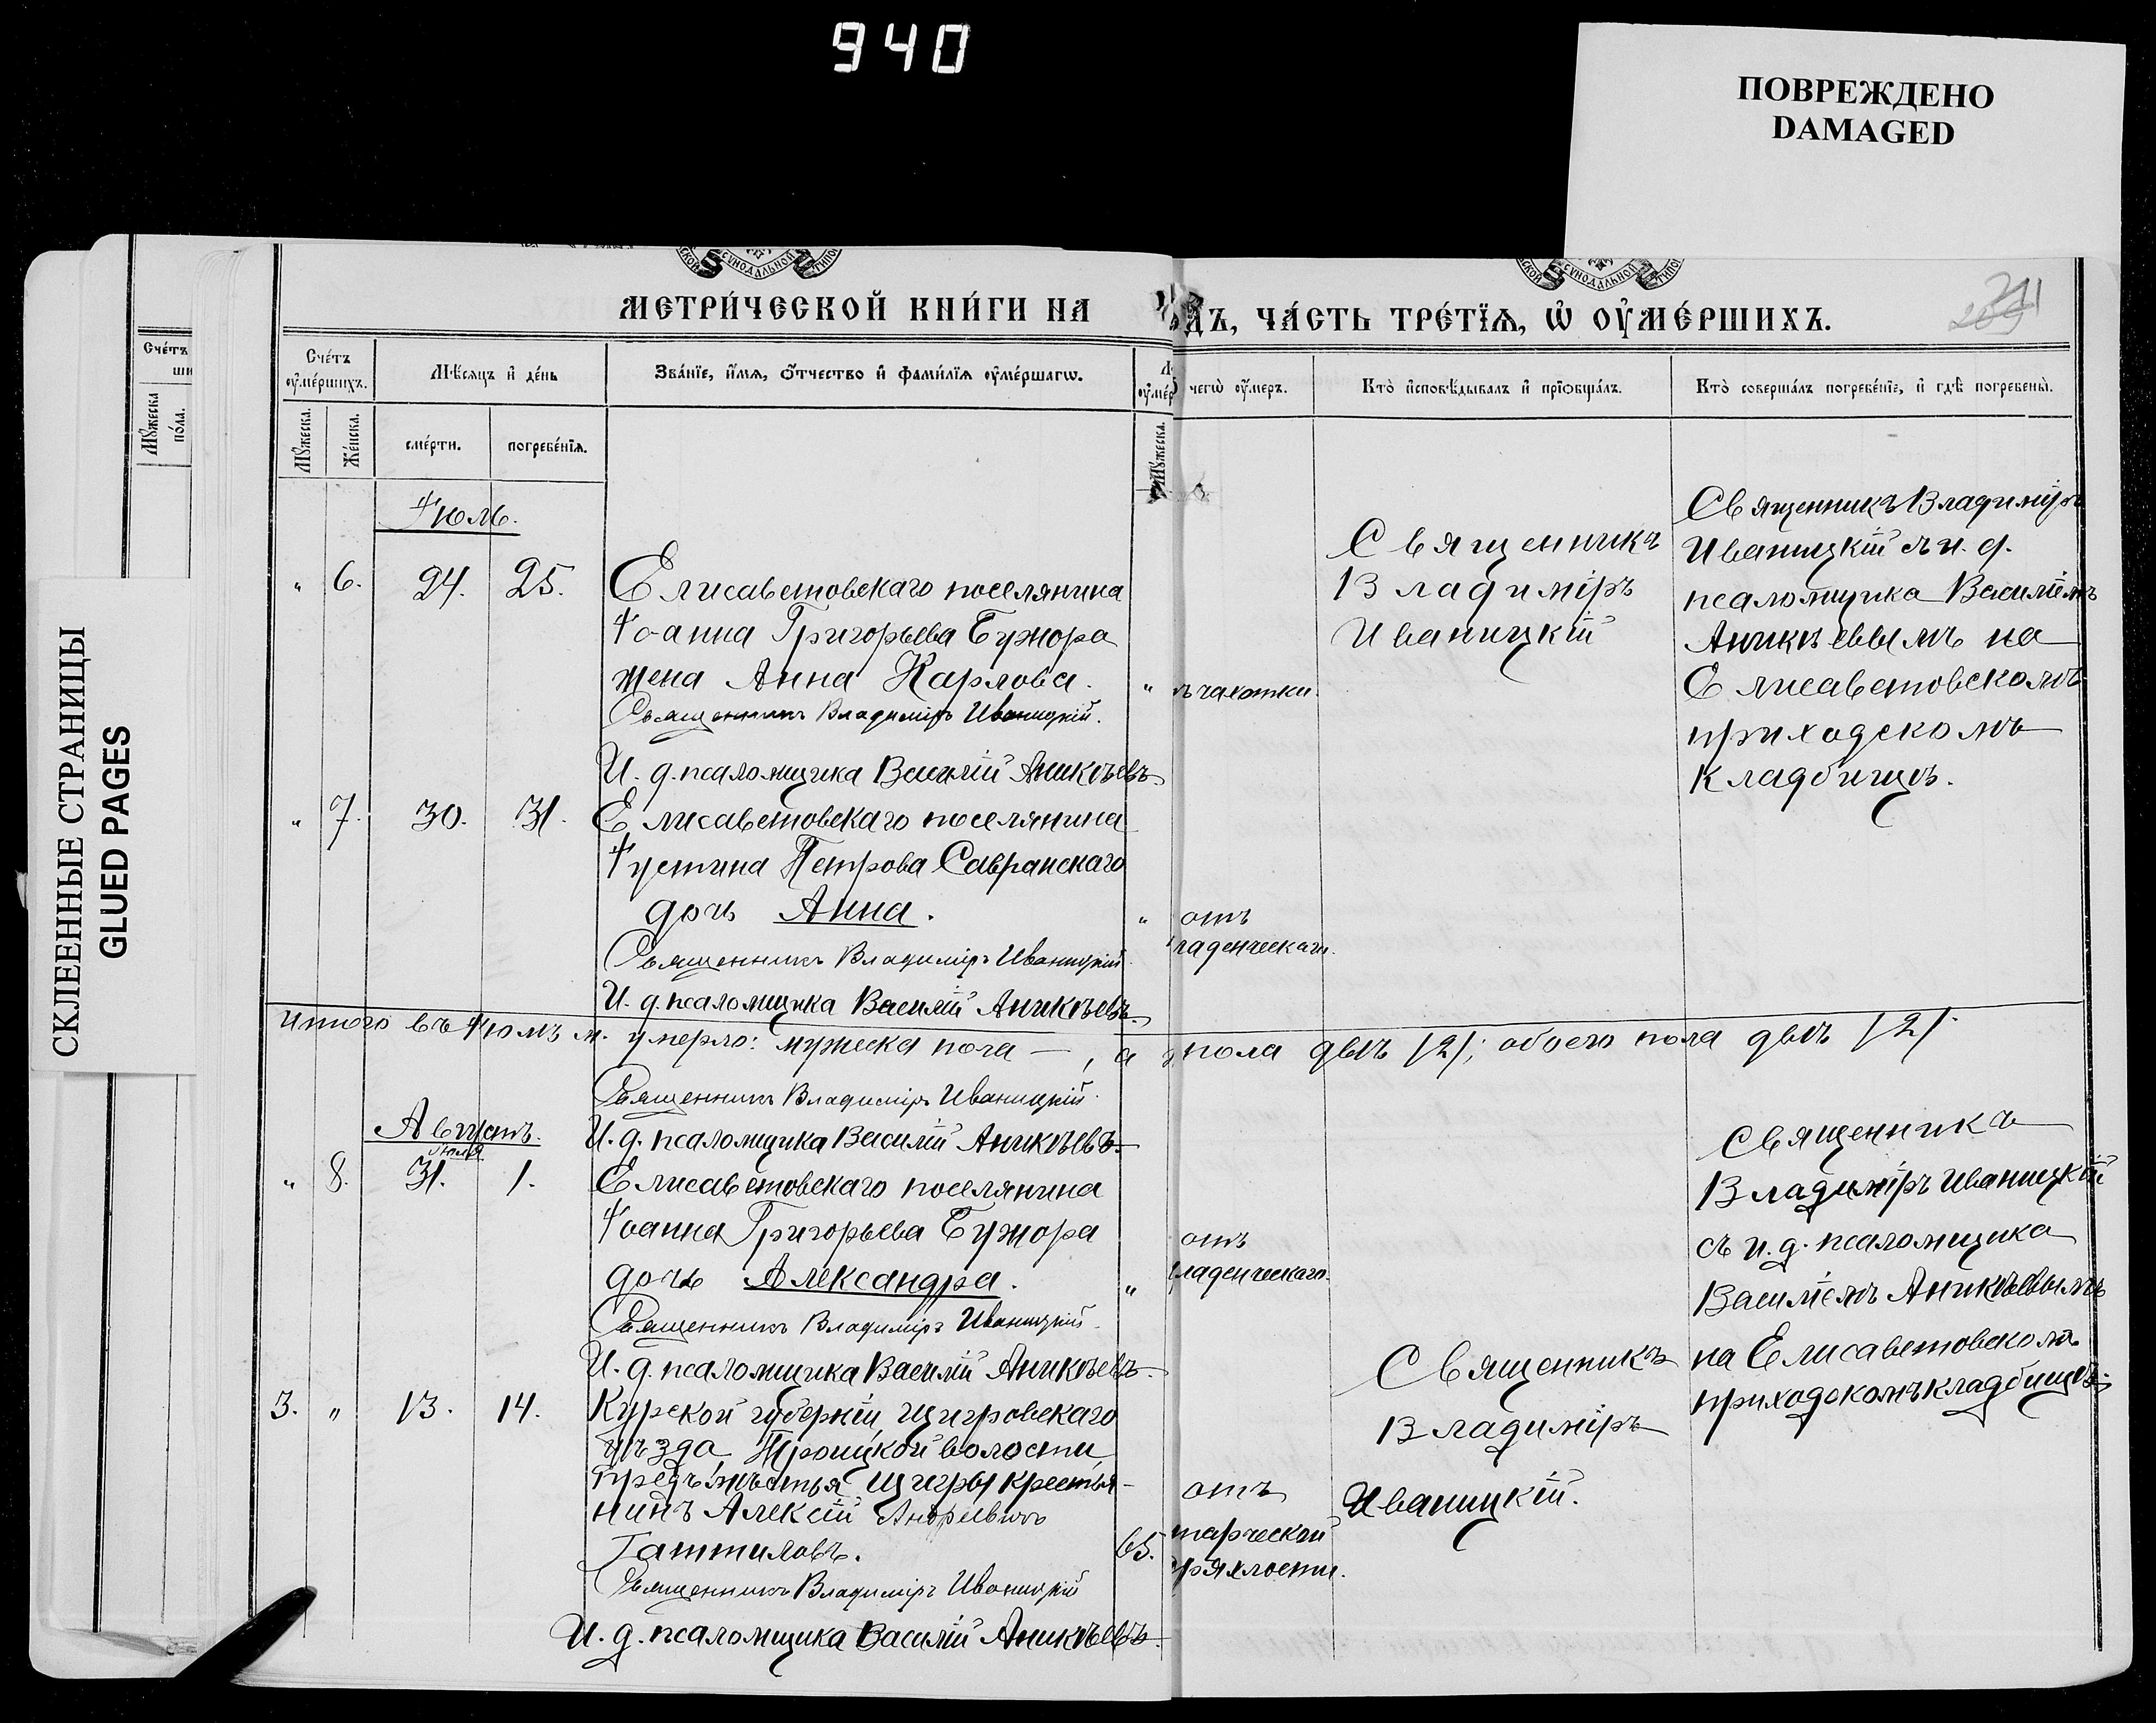 940
ПОВРЕЖДЕНО
DAMAGED
СКЛЕЕННЫЕ СТРАНИЦЫ
GLUED PAGES
МЕТРИ́ЧЕСКОЙ КНИ́ГИ НА
ДЪ, ЧА́СТЬ ТРЕ́ТЇѦ, Ѡ ОУ҆МЕ́РШИХЪ.
211
Счéтъ оу҆мéршихъ.
Мѣ́сяцъ и҆ дéнь
Звáнїе, и҆́мѧ, ѻ҆́тчество и҆ фамѝлїѧ оу҆мéршагѡ.
чегѡ̀ оу҆́меръ.
Ктò и҆сповѣ́дывалъ и҆ прїѡбщáлъ.
Ктò совершáлъ погребéнїе, и҆ гдѣ̀ погребены̀.
Мꙋ́жеска.
Жéнска.
смéрти.
погребéнїѧ.
Мꙋ́жеска.
Счéтъ
Мꙋ́жеска
пóла.
Іюль.
" 6. 24. 25.
Елисаветовскаго поселянина
Іоанна Григорьева Бужора
жена Анна Карлова. "
Священникъ Владиміръ Иваницкій.
И. д. псаломщика Василій Аникѣевъ
ъ чахотки.
Священникъ
Владиміръ
Иваницкій
Священникъ Владиміръ
Иваницкій съ и. д.
псаломщика Василіемъ
Аникѣевымъ на
Елисаветовскомъ
приходскомъ
кладбищѣ.
" 7. 30. 31.
Елисаветовскаго поселянина
Іустина Петрова Савранскаго
дочь Анна. "
Священникъ Владиміръ Иваницкій.
И. д. псаломщика Василій Аникѣевъ.
отъ
ладенческаго.
Итого въ Іюлѣ м. умерло: мужеска пола — , а
пола двѣ /2/; обоего пола двѣ /2/.
Священникъ Владиміръ Иваницкій.
И. д. псаломщика Василій Аникѣевъ.
Августъ.
Іюля
" 8. 31. 1.
Елисаветовскаго поселянина
Іоанна Григорьева Бужора
дочь Александра. "
Священникъ Владиміръ Иваницкій.
И. д. псаломщика Василій Аникѣевъ.
отъ
ладенческаго.
Священникъ
Владиміръ Иваницкій
съ и. д. псаломщика
Василіемъ Аникѣевымъ
на Елисаветовскомъ
приходскомъ кладбищѣ.
3. " 13. 14.
Курской губерніи Щигровскаго
уѣзда Троицкой волости
предмѣстья Щигры крестья-
нинъ Алексій Андреевичъ
65.
Священникъ Владиміръ Иваницкій
И. д. псаломщика Василій Аникѣевъ.
отъ
тарческой
ряхлости.
Священникъ
Владиміръ
Иваницкій.